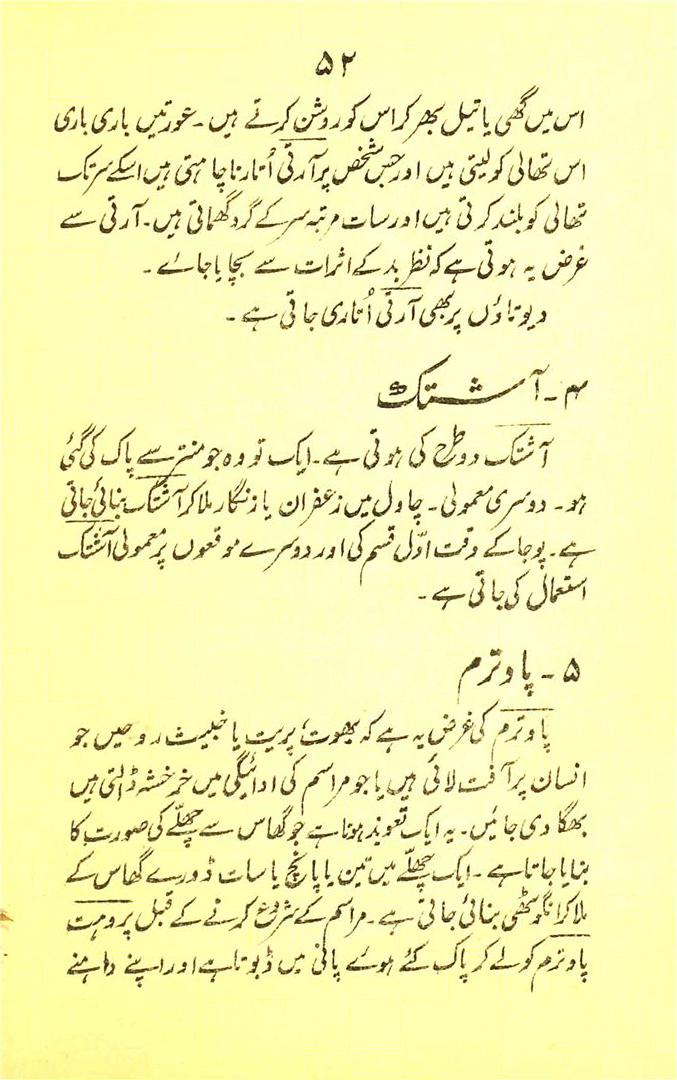 ۵۲
اس میں گھی یا تیل بھر کر اس کو روشن کرتے ہیں۔ عورتیں باری باری
اس تھالی کو لیتی ہیں اور جس شخص پر آرتی اُتارنا چاہتی ہیں اسکے سر تک
تھالی کو بلند کرتی ہیں اور سات مرتبہ سر کے گرد گھماتی ہیں۔ آرتی سے
غرض یہ ہوتی ہے کہ نظر بد کے اثرات سے بچایا جائے۔
دیوتاؤں پر بھی آرتی اُتاری جاتی ہے۔
۴۔ آشتک
آشتک دو طرح کی ہوتی ہے۔ ایک تو وہ جو منتر سے پاک کی گئی
ہو۔ دوسری معمولی۔ چاول میں زعفران یا زنگار ملا کر آشتک بنائی جاتی
ہے۔ پوجا کے وقت اوّل قسم کی اور دوسرے موقعوں پر معمولی آشتک
استعمال کی جاتی ہے۔
۵۔ پاوترم
پاوترم کی غرض یہ ہے کہ بھوت، پریت یا خبیث روحیں جو
انسان پر آفت لاتی ہیں یا جو مراسم کی ادائیگی میں خرخشہ ڈالتی ہیں
بھگا دی جائیں۔ یہ ایک تعویذ ہوتا ہے جو گھاس سے چھلّے کی صورت کا
بنایا جاتا ہے۔ ایک چھلّے میں تین یا پانچ یا سات ڈورے گھاس کے
ملا کر انگوٹھی بنائی جاتی ہے۔ مراسم کے شروع کرنے کے قبل پروہت
پاوترم کو لے کر پاک کئے ہوئے پانی میں ڈبوتا ہے اور اپنے داہنے